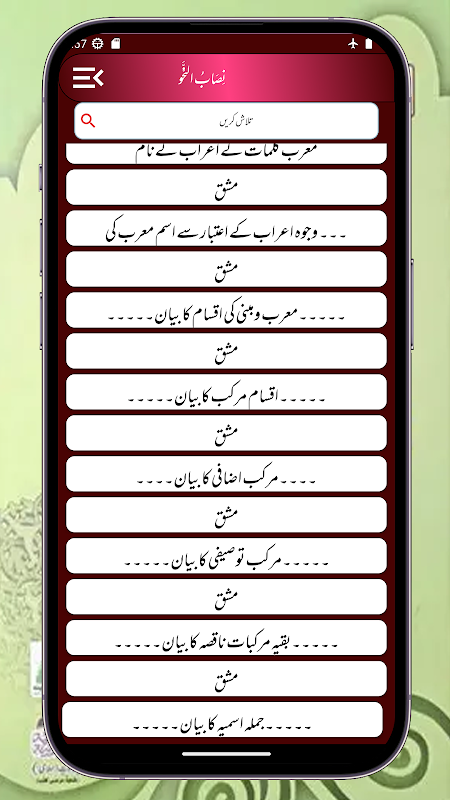 :37
نِصَابُ النَّحْو
تلاش کریں
معرب کلمات کے اعراب کے نام
مشق
۔۔۔ وجوہ اعراب کے اعتبار سے اسم معرب کی
مشق
۔۔۔۔۔معرب و مبنی کی اقسام کا بیان۔۔۔۔۔
مشق
۔۔۔۔۔اقسام مرکب کا بیان۔۔۔۔۔
مشق
۔۔۔۔مرکب اضافی کا بیان۔۔۔۔
مشق
۔۔۔۔۔مرکب توصیفی کا بیان۔۔۔۔۔
مشق
۔۔۔۔۔ بقیہ مرکبات ناقصہ کا بیان۔۔۔۔۔
مشق
۔۔۔۔۔جملہ اسمیہ کا بیان۔۔۔۔۔